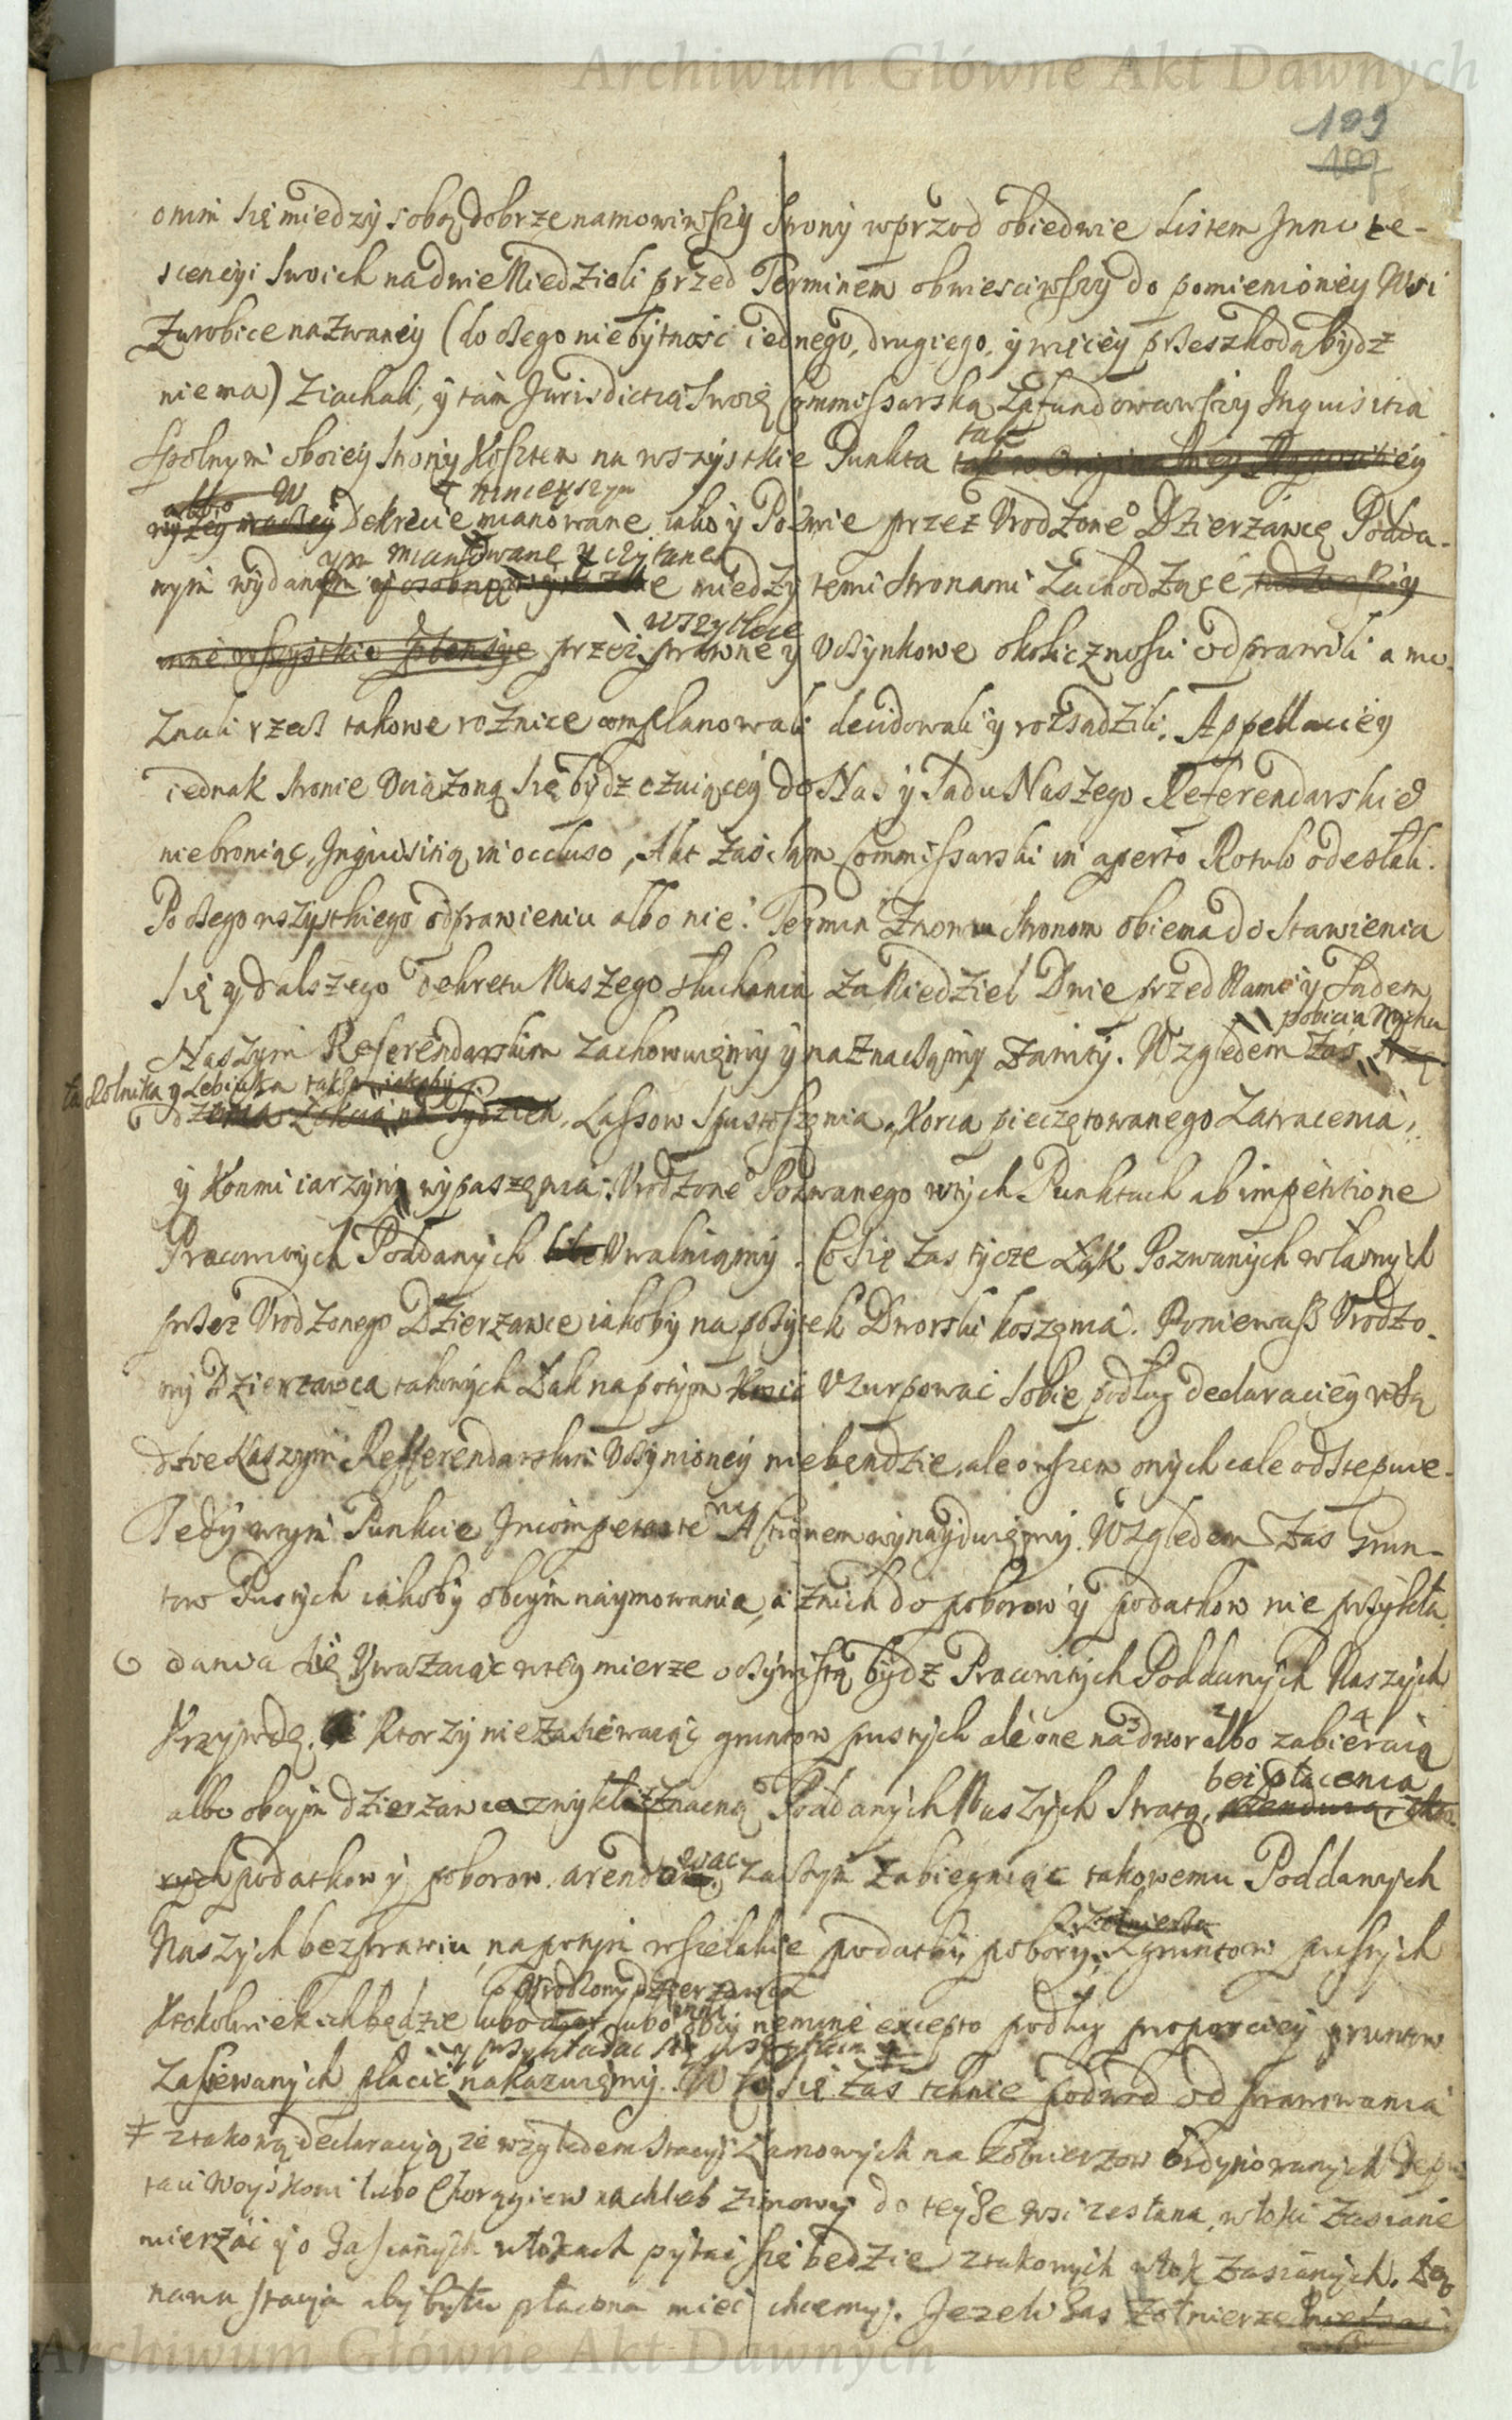 Archiwum Główne Akt Dawnych
109
107
onim się miedzy sobą dobrze namowiwszy Strony wprzod obiedwie Listem Innote-
scencyi Swoich na dwie Niedzieli przed Terminem obwiesciwszy do pomienioney Wsi
Zurobice nazwaney (do czego niebytność iednego, drugiego, y więcey przeszkodą bydz
niema) Ziachali, y tam Jurisdictią Swoię Commissarską Zafundowawszy Inquisitia
Spolnym oboiey Strony Kosztem na wszystkie Punkta
tak
albo W ninieyszym
wyzey Dekrecie mianowane iako y Pozwie przez Urodzone° Dzierzawcę Podda-
ym mianowane y czytane
nym wydanym miedzy temi Stronami Zachodzące
wszytkie
inne wszystkie przez prawne y Uczynkowe okolicznosci odprawili a
znali rzecz takowe roznice complanowali decidowali y rozsadzili. Appellaciey
iednak Stronie Uciążoną się bydz czuiącey do Nas y Sadu Naszego Referendarskie°
niebroniąc, Inquisitią in occluso, Akt zaś sam Commissarski in aperto Rotulo odesłali.
Po czego wszystkiego odprawieniu albo nie. Termin Znowu Stronom obiema do Stawienia
się y dalszego Dekretu Naszego słuchania za Niedziel Dwie przed Nami y Sadem
pobicia
Naszym Referendarskim zachowuięmy y naznaczamy Zawity. Względem Zas
Rolnika y
Lassow Spustoszenia, Korca pieczętowanego Zatracenia,
y Konmi iarzyny wypaszęnia, Urodzone° Pozwanego wtych Punktach ab impetitione
Pracowitych Poddanych Uwalniamy. Co się Zas tycze Łąk Pozwanych własnych
przez Urodzonego Dzierzawce iakoby na pożytek Dworski koszęnia. Poniewasz Urodzo-
ny Dzierzawca takowych Łąk napotym Kosić Uzurpowac sobie podług declaraciey w Są-
dzie Naszym Refferendarskim Uczynioney niebendzie, ale owszem onych cale odstepuie-
Tedy wtym Punkcie Incompetente na Actionem wynayduięmy. Względem Zas Grun-
tow Pustych iakoby obcym naymowania, a znich do poborow y podatkow nie przykła-
dania się Uwazaiąc wtey mierze oczywistą bydz Pracowitych Poddanych Naszych
Krzywdę. Ktorzy nie zasiewaiąc gruntow pustych ale one na dwor albo zabieraią
3 2 4
bez płacenia
albo obcym dzierzawca zwykła Znaczną Poddanych Naszych Stratą,
rych podatkow y poborow. arendowac, zaczym zabiegaiąc takowemu Poddanych
Zołnierska
Naszych bezprawiu, napotym wszelakie podatki, pobory, z gruntow pustych
Urodzony dzierzawca
Ktokolwiek ich będzie lubo dwor lubo inni obcy nemine excepto podług proporciey gruntow
y przykładac się
zasiewanych płacić nakazuięmy. W Co się Zas tchnie podwod od prawowania
‡ ztakową declaracyą, że względem Stacyi Zimowych na Zołnierzow ordynowanych
taci Woyskowi lubo Chorągiew na chleb zimowy do teyże wsi zesłana, włoki zasiane
mierzać y o zasianych włokach pytać się bedzie ztakowych włok zasianych.
nana stacya aby była płacona mieć chcemy. Jezeli Zas Zołnierze
Archiwum Główne Akt Dawnych